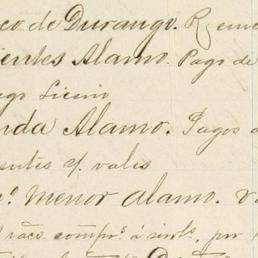 co de Durango. Rem
ientes Alamo. Pago de
ego Licino
nda Alamo. Pagos
entes y. vales
º. menor alamo. Va
racs. comprs. á sirvts., por